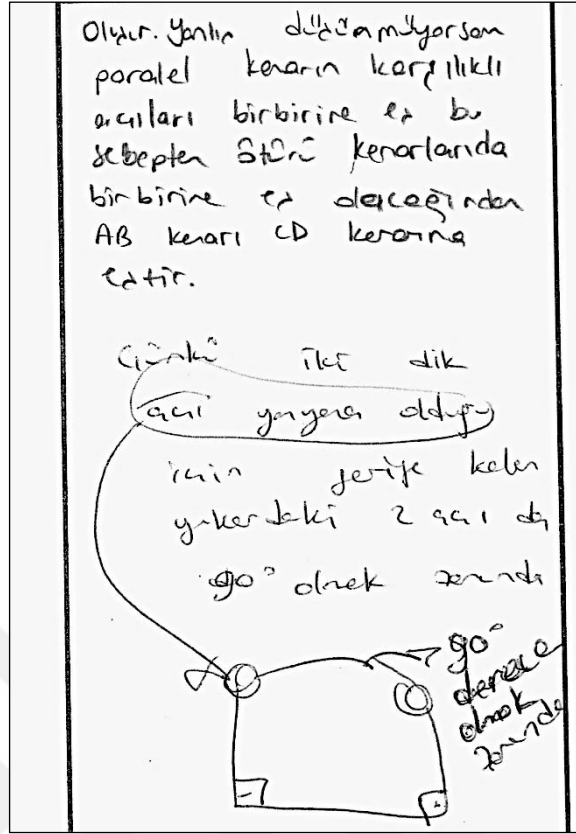 Oluşur. Yanlış düşünmüyorsam
paralel kenarın karşılıklı
açıları birbirine eş bu
sebepten ötürü kenarlarıda
birbirine eş olacağından
AB kenarı CD kenarına
eştir.
Çünkü iki dik
açı yanyana olduğu
için geriye kalan
yukardaki 2 açı da
90° olmak zorunda
90°
derece
olmak
zorunda